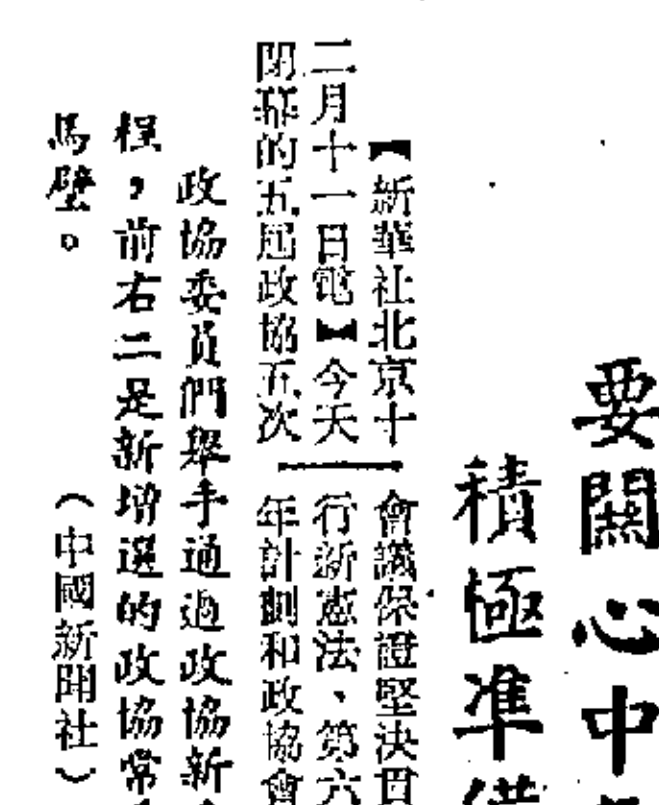 要關心中
積極準
【新華社北京十
二月十一日電】今天
閉幕的五屆政協五次
會議保證堅決貫
行新憲法、第六
年計劃和政協會
政協委員們舉手通過政協新
程，前右二是新增選的政協常
馬璧。
（中國新聞社）